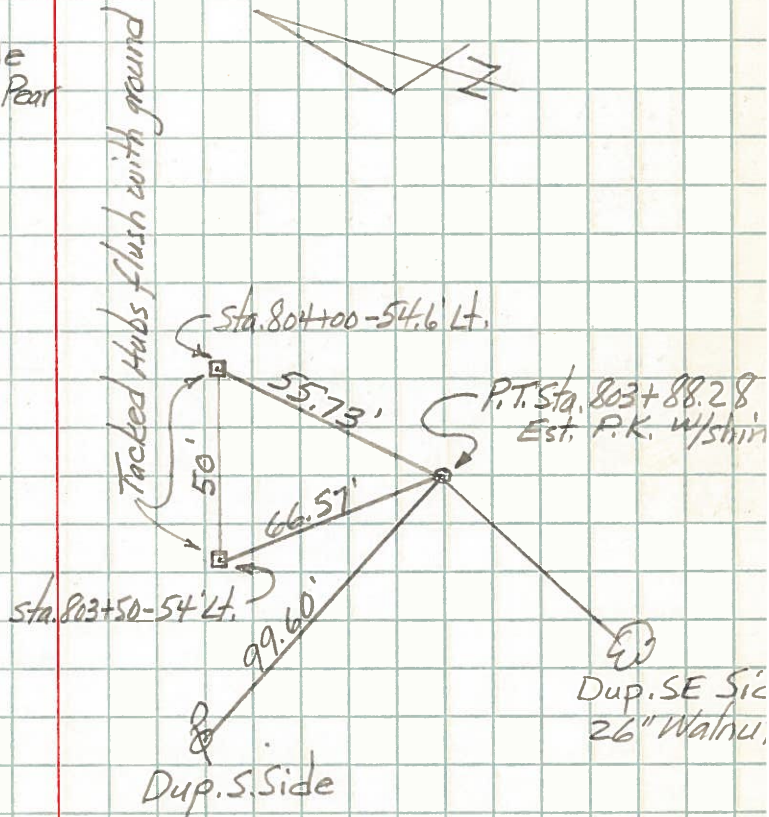 e
Pear
Tacked Hubs flush with ground
N
Sta. 804+00-54.6' Lt.
55.73'
P.T. Sta. 803+88.28
Est. P.K. w/shin
50'
66.57'
Sta. 803+50-54' Lt.
99.60'
Dup. SE Sid
26" Walnu
Dup. S. Side